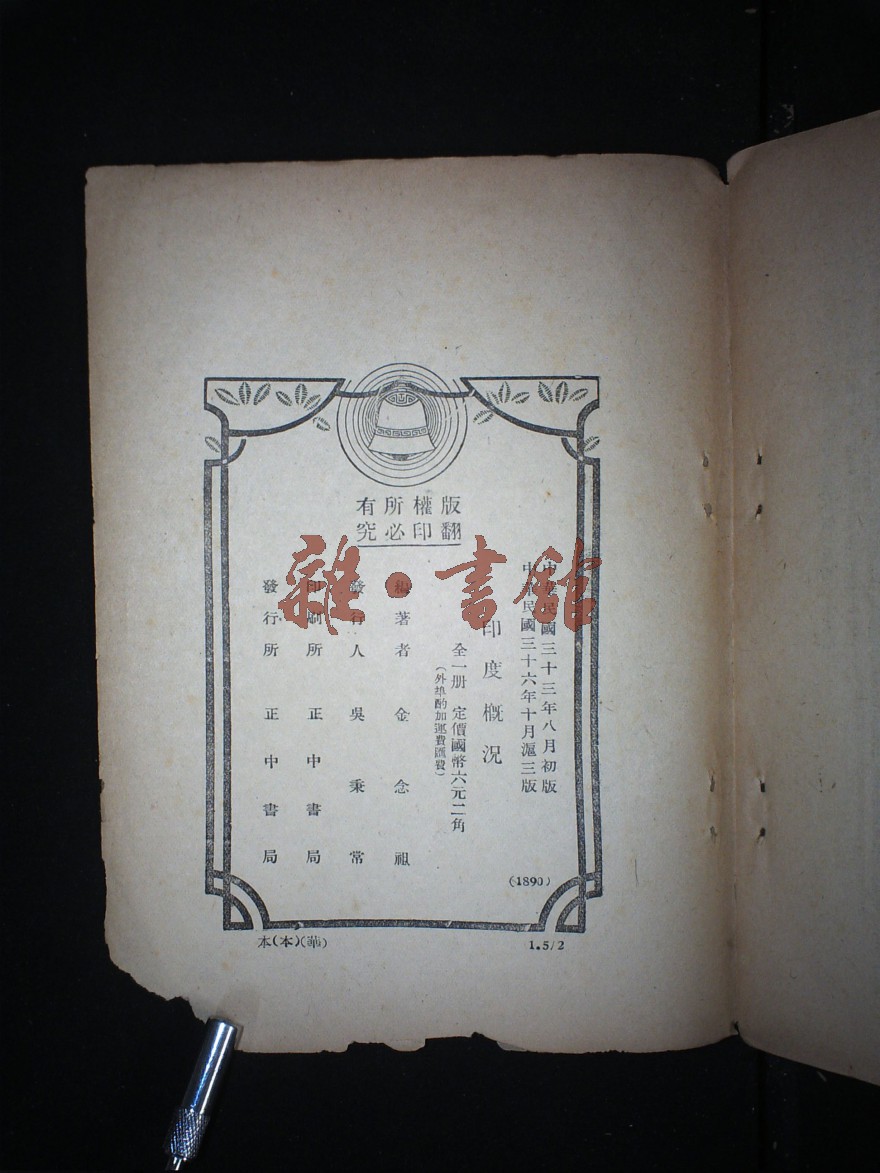 版權所有
翻印必究
中華民國三十三年八月初版
中華民國三十六年十月滬三版
印度概況
全一册 定價國幣六元二角
(外埠酌加運費匯費)
編著者 金念祖
發行人 吳秉常
印刷所 正中書局
發行所 正中書局
(1890)
本(本)(華)
1.5/2
雜·書館